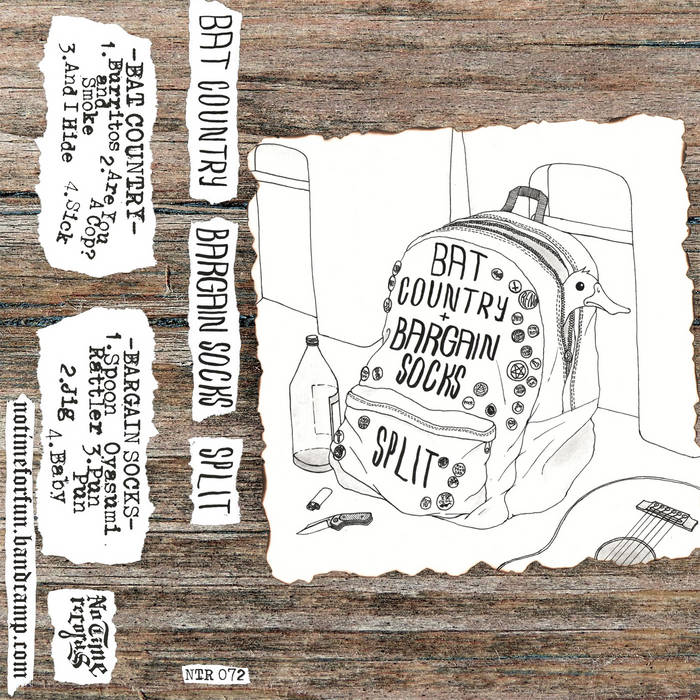 BAT
COUNTRY
+
BARGAIN
SOCKS
SPLIT
BAT COUNTRY
BARGAIN SOCKS
SPLIT
NTR 072
-BAT COUNTRY-
1.Burritos 2.Are You
and A Cop?
Smoke
3.And I Hide 4.Sick
-BARGAIN SOCKS-
1.Spoon Oyasumi
Rattler 3.Pun
2.Jig Pun
4.Baby
No Time
records
notimeforfun.bandcamp.com